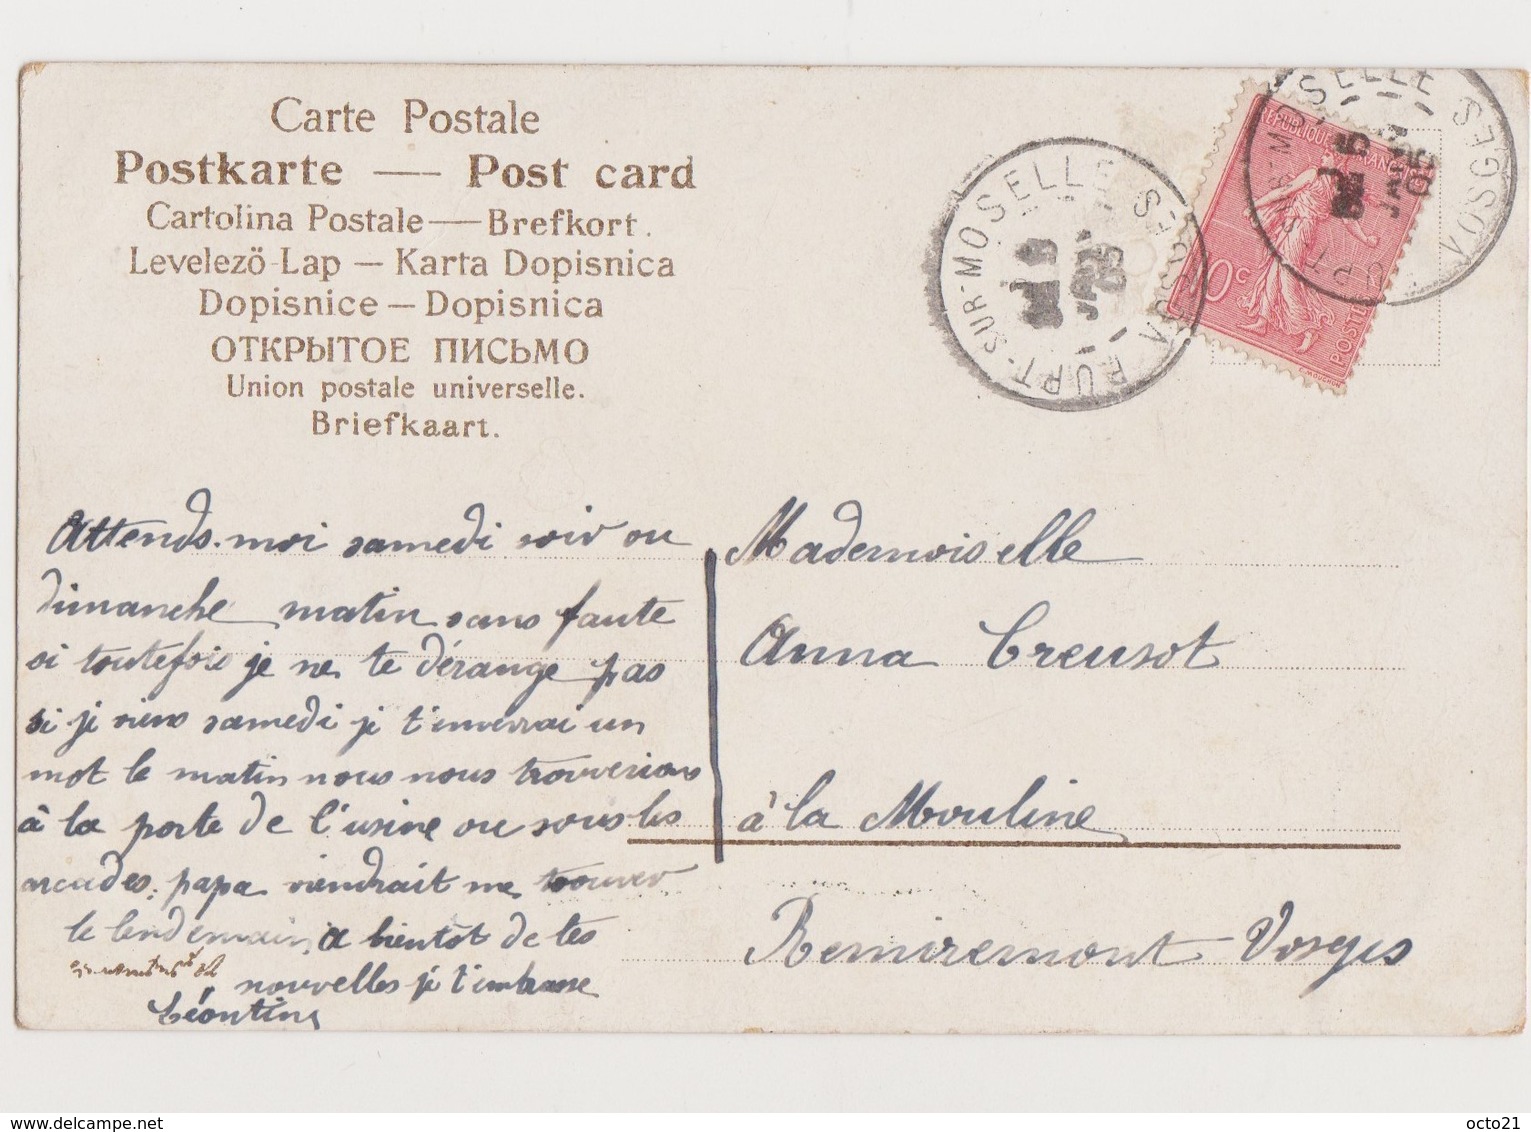 Carte Postale
Postkarte — Post card
Cartolina Postale — Brefkort.
Levelezö-Lap — Karta Dopisnica
Dopisnice — Dopisnica
ОТКРЫТОЕ ПИСЬМО
Union postale universelle.
Briefkaart.
RUPT-SUR-MOSELLE VOSGES
JANV 05
REPUBLIQUE FRANÇAISE
10c
POSTES
RUPT-SUR-MOSELLE VOSGES
05
Attends-moi samedi soir ou
dimanche matin sans faute
si toutefois je ne te dérange pas
si je viens samedi je t'enverrai un
mot le matin nous nous trouverions
à la porte de l'usine ou sous les
arcades. papa viendrait me trouver
le lendemain, a bientôt de tes
nouvelles je t'embrasse
Léontine
Mademoiselle
Anna Creusot
à la Mouline
Remiremont Vosges
octo21